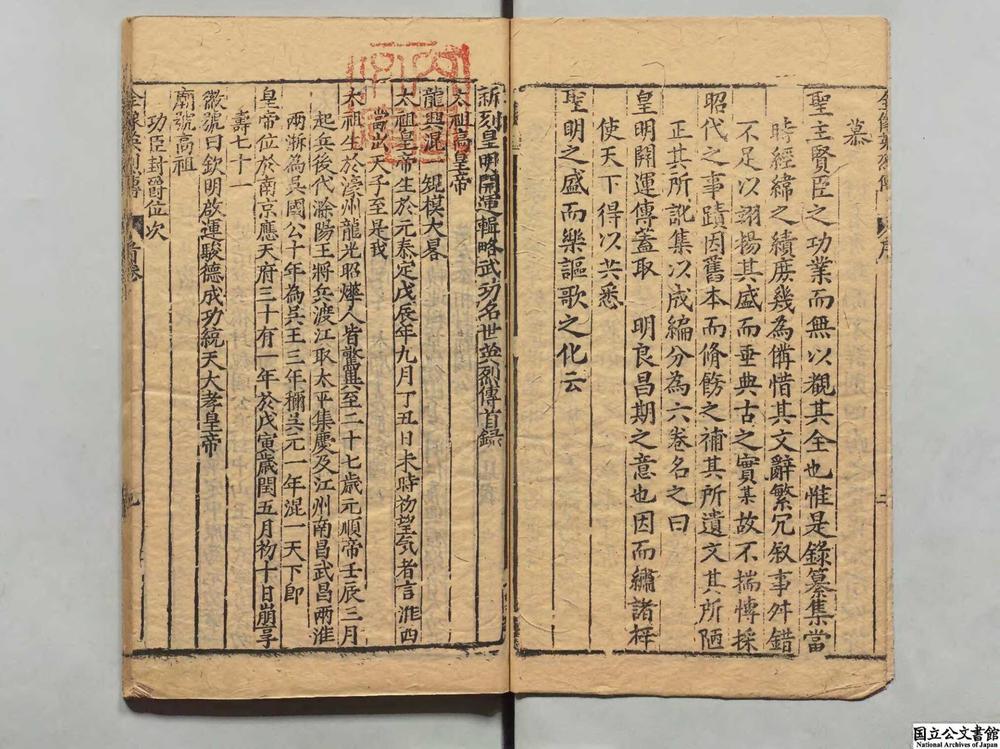 慕
聖主賢臣之功業而無以觀其全也惟是錄纂集當
時經緯之績庶幾為備惜其文辭繁冗叙事舛錯
不足以翊揚其盛而垂典古之實某故不揣愽採
昭代之事蹟因舊本而脩餙之補其所遺文其所陋
正其所訛集以成編分為六卷名之曰
皇明開運傳蓋取 明良昌期之意也因而繡諸梓
使天下得以共悉
聖明之盛而樂謳歌之化云
新刻皇明開運輯略武功名世英烈傳首錄
太祖高皇帝
龍興混 規模大畧
太祖皇帝生於元泰定戊辰年九月丁丑日未時初望気者言淮西
當出天子至是我
太祖生於濠州龍光昭燁人皆驚異至二十七歲元順帝壬辰三月
起兵後代滁陽王將兵渡江取太平集慶及江州南昌武昌兩淮
兩浙為吳國公十年為吳王三年稱吳元一年混一天下即
皇帝位於南京應天府三十有一年於戊寅歲閏五月初十日崩享
壽七十一
徽號曰欽明啟運駿德成功統天大孝皇帝
廟號高祖
功臣封爵位次
全像英烈傳 首卷
国立公文書館
National Archives of Japan